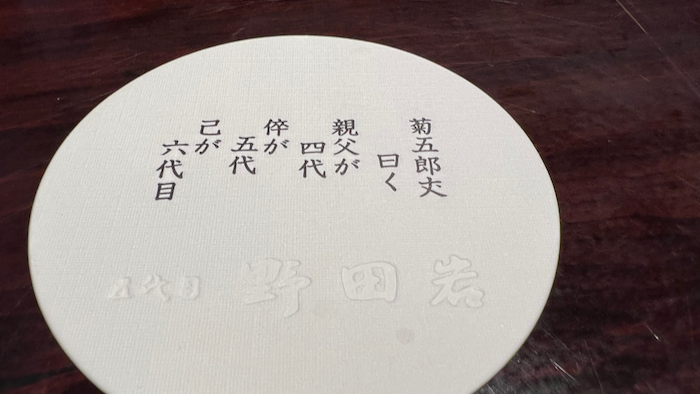 菊五郎丈
曰く
親父が
四代
倅が
五代
己が
六代目
五代目 野田岩